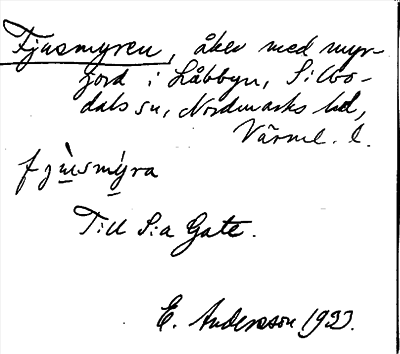 Fjusmyren, åker med myr-
jord i Låbbyn, Silbo-
dals sn, Nordmarks hd,
Värml. l.
fjùsmýra
Till S:a Gate.
E. Andersson 1923.